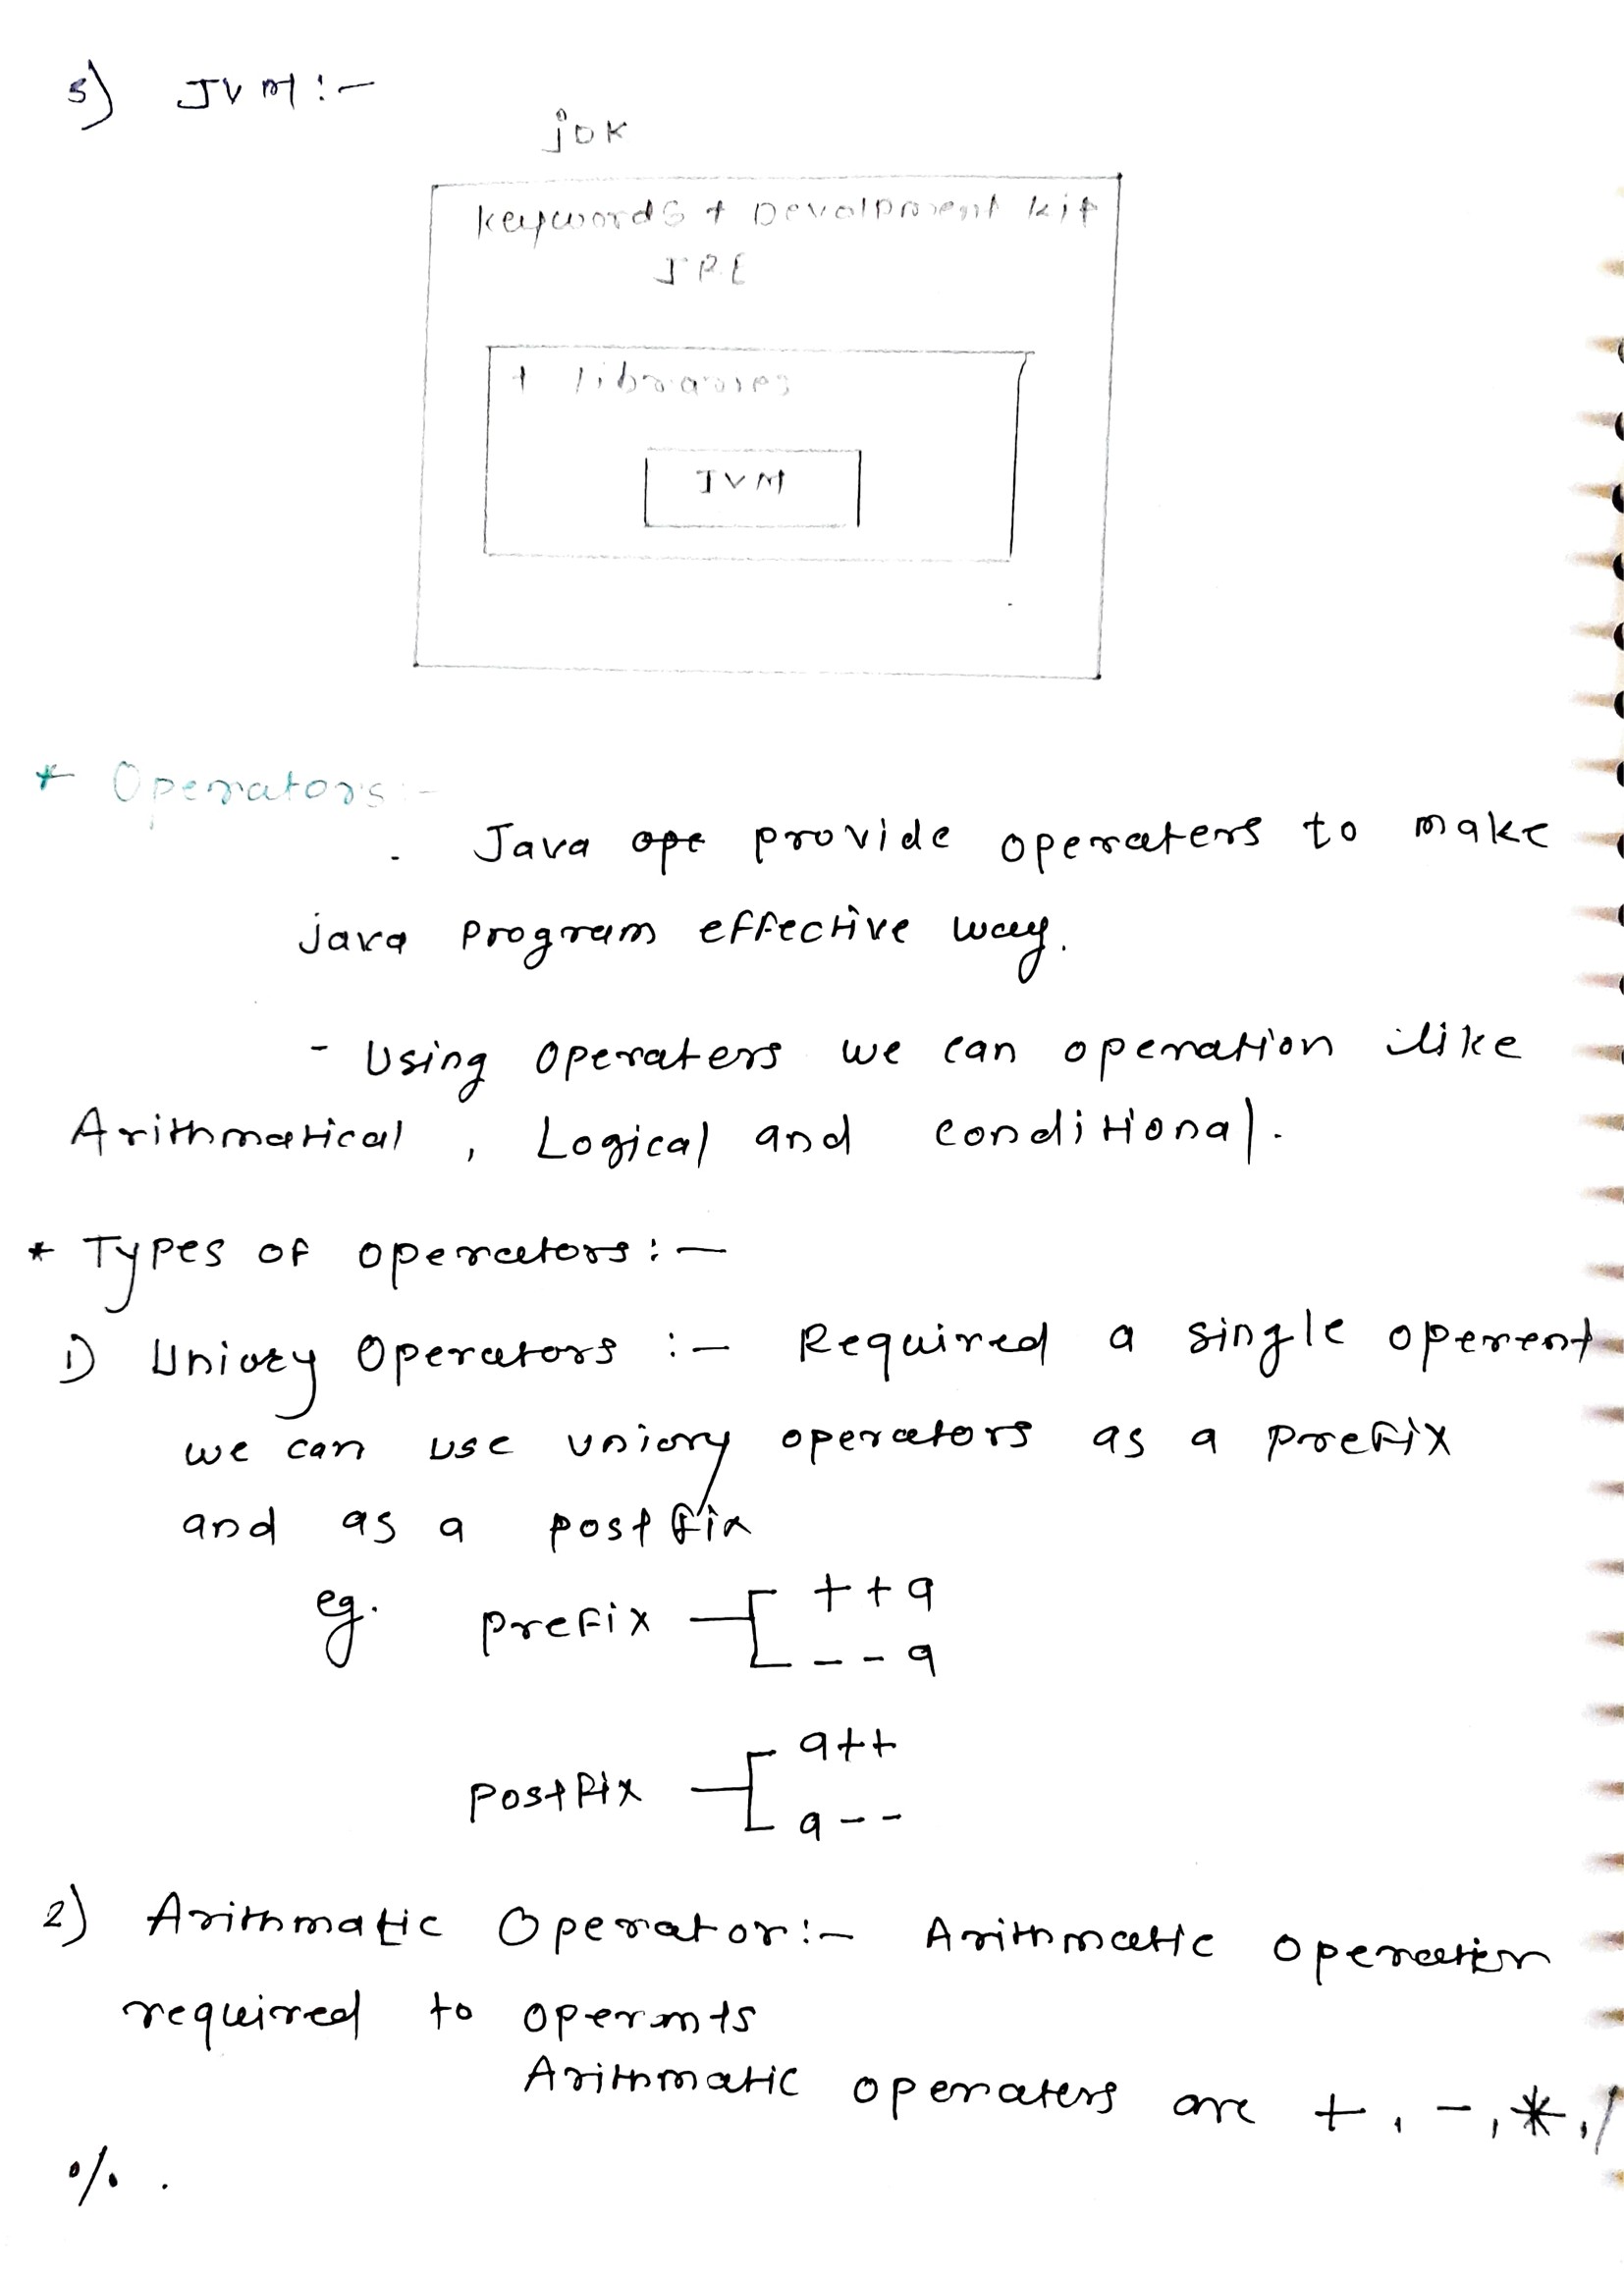 5) JVM:-
jDK
keywords + Devalpment kit
JRE
+ libraries
JVM
* Operators:-
. Java ope provide operaters to make
java program effective way.
- Using operaters we can operation like
Arithmatical , Logical and conditional.
* Types of operators:-
1) Uniory Operators :- Required a single operent
we can use uniory operators as a prefix
and as a postfix
eg. prefix ++a
--a
postfix a++
a--
2) Arithmatic Operator:- Arithmatic operation
required to
Arithmatic operaters are +, -, *, /
% .